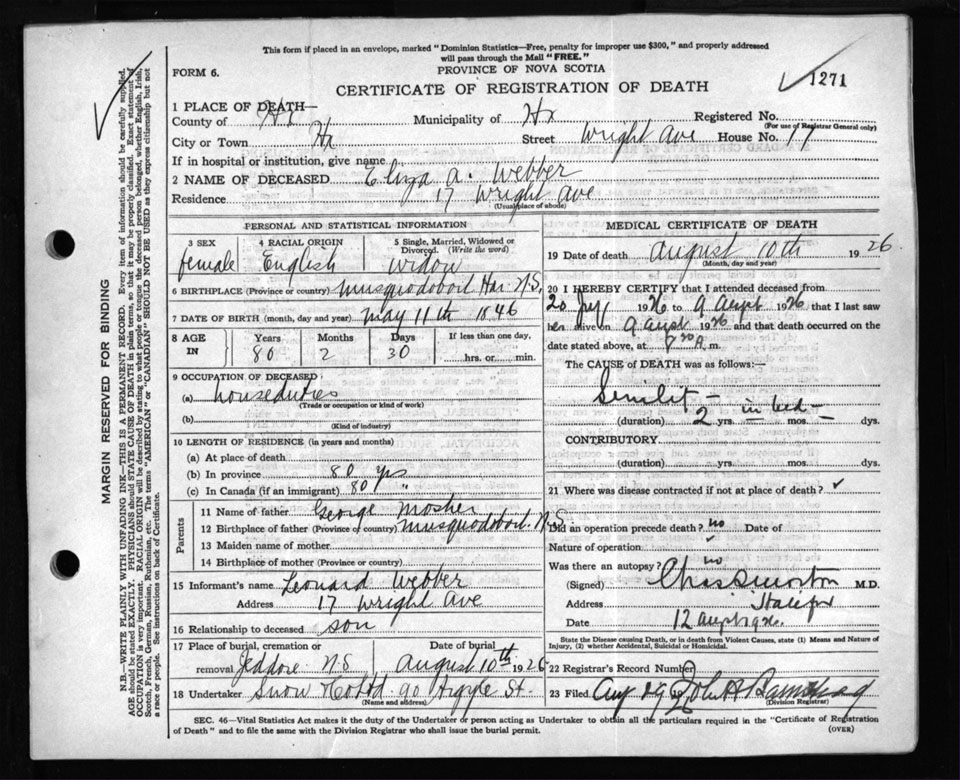 This form if placed in an envelope, marked "Dominion Statistics—Free, penalty for improper use $300," and properly addressed
will pass through the Mail "FREE."
FORM 6.
PROVINCE OF NOVA SCOTIA
CERTIFICATE OF REGISTRATION OF DEATH
1271
1 PLACE OF DEATH—
County of Hx Municipality of Hx Registered No.
(For use of Registrar General only)
City or Town Hx Street Wright Ave House No. 17
If in hospital or institution, give name
2 NAME OF DECEASED Eliza A. Webber
Residence 17 Wright Ave
(Usual place of abode)
PERSONAL AND STATISTICAL INFORMATION
3 SEX 4 RACIAL ORIGIN 5 Single, Married, Widowed or Divorced. (Write the word)
female English widow
6 BIRTHPLACE (Province or country) Musquodoboit Har N.S.
7 DATE OF BIRTH (month, day and year) May 11th 1846
8 AGE IN Years Months Days If less than one day,
80 2 30 hrs. or min.
9 OCCUPATION OF DECEASED
(a) houseduties
(Trade or occupation or kind of work)
(b)
(Kind of industry)
10 LENGTH OF RESIDENCE (in years and months)
(a) At place of death
(b) In province 80 yrs
(c) In Canada (if an immigrant) 80 "
Parents
11 Name of father George Mosher
12 Birthplace of father (Province or country) Musquodoboit N.S.
13 Maiden name of mother
14 Birthplace of mother (Province or country)
15 Informant's name Leonard Webber
Address 17 Wright Ave
16 Relationship to deceased son
17 Place of burial, cremation or removal Jeddore N.S Date of burial August 10th 1926
18 Undertaker Snow & Co Ltd 90 Argyle St.
(Name and address)
MEDICAL CERTIFICATE OF DEATH
19 Date of death August 10th 1926
(Month, day and year)
20 I HEREBY CERTIFY that I attended deceased from
20 1926 to 9 Augst 1926 that I last saw
her alive on 9 Augst 1926 and that death occurred on the
date stated above, at m.
The CAUSE OF DEATH was as follows:—
Senility –
(duration) 2 yrs. in bed – mos. dys.
CONTRIBUTORY
(duration) yrs. mos. dys.
21 Where was disease contracted if not at place of death? ✓
Did an operation precede death? no Date of
Nature of operation
Was there an autopsy? no
(Signed) Chas M.D.
Address Halifax
Date 12 Augst 1926.
State the Disease causing Death, or in death from Violent Causes, state (1) Means and Nature of
Injury, (2) whether Accidental, Suicidal or Homicidal.
22 Registrar's Record Number
23 Filed Aug 1926 John
(Division Registrar)
SEC. 46—Vital Statistics Act makes it the duty of the Undertaker or person acting as Undertaker to obtain all the particulars required in the "Certificate of Registration
of Death" and to file the same with the Division Registrar who shall issue the burial permit.
(OVER)
MARGIN RESERVED FOR BINDING
N.B.—WRITE PLAINLY WITH UNFADING INK—THIS IS A PERMANENT RECORD. Every item of information should be carefully supplied.
AGE should be stated EXACTLY. PHYSICIANS should STATE CAUSE OF DEATH in plain terms, so that it may be properly classified. Exact statement of
OCCUPATION is very important. RACIAL ORIGIN will be described by stating to what people or tongue the deceased person belonged, whether English, Irish,
Scotch, French, German, Russian, Ruthenian, etc. The terms "AMERICAN" or "CANADIAN" SHOULD NOT BE USED as they express citizenship but not
a race or people. See instructions on back of Certificate.